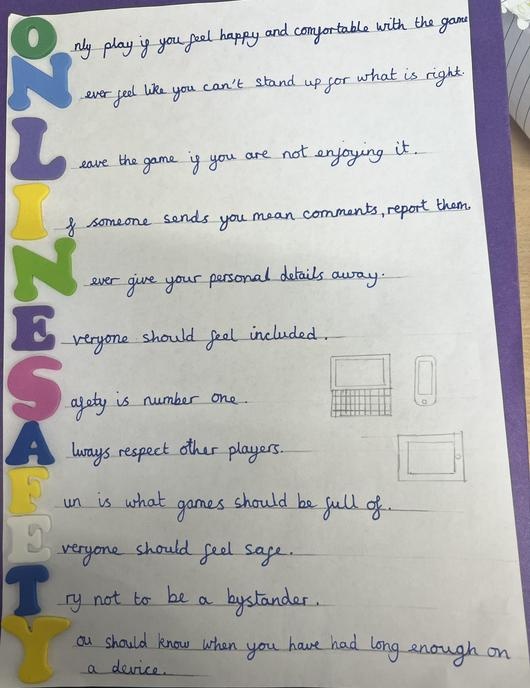 Only play if you feel happy and comfortable with the game
Never feel like you can't stand up for what is right.
Leave the game if you are not enjoying it.
If someone sends you mean comments, report them.
Never give your personal details away.
Everyone should feel included.
Safety is number one.
Always respect other players.
Fun is what games should be full of.
Everyone should feel safe.
Try not to be a bystander.
You should know when you have had long enough on
a device.